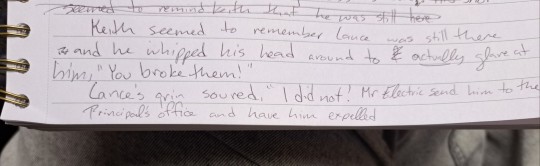 seemed to remind Keith that he was still here
Keith seemed to remember Lance was still there
and he whipped his head around to actually glare at
him, "You broke them!"
Lance's grin soured, "I did not! Mr Electric send him to the
Principal's office and have him expelled